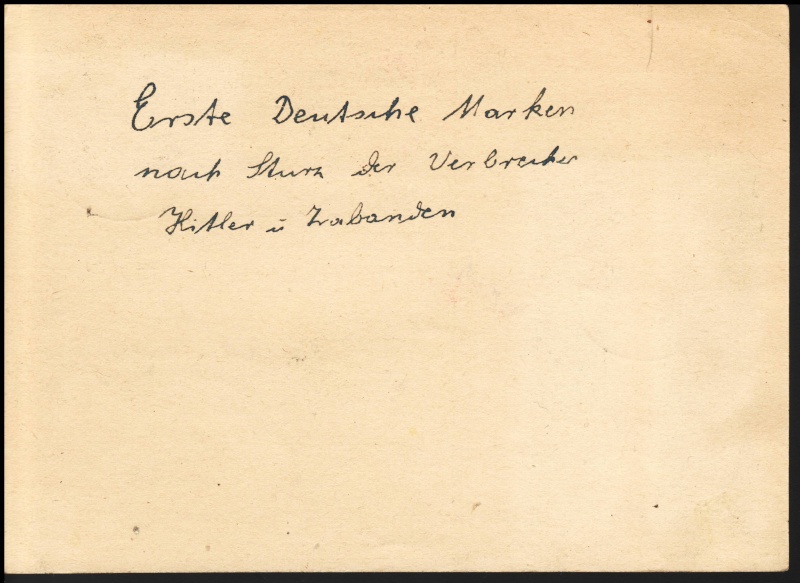 Erste Deutsche Marken
nach Sturz der Verbrecher
Hitler u Trabanden